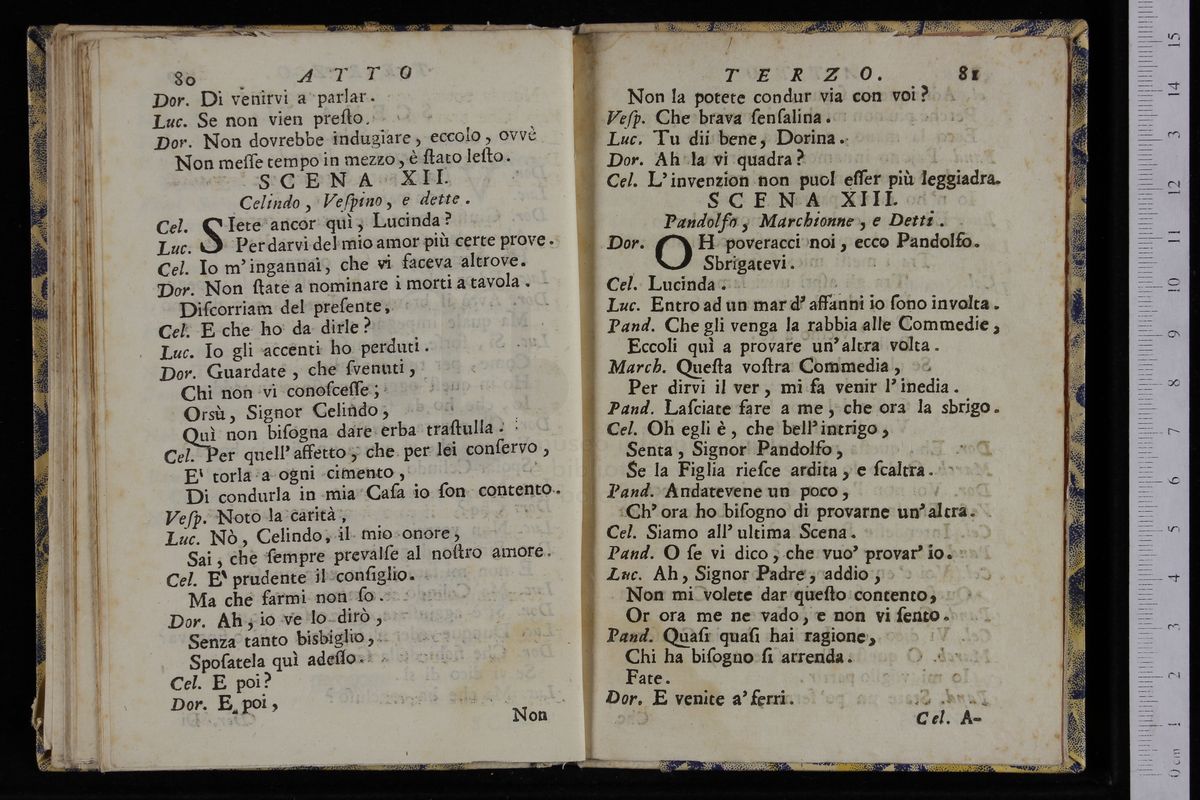 80 ATTO
Dor. Di venirvi a parlar.
Luc. Se non vien preſto.
Dor. Non dovrebbe indugiare, eccolo, ovvè
Non meſſe tempo in mezzo, è ſtato leſto.
SCENA XII.
Celindo, Veſpino, e dette.
Cel. SIete ancor quì, Lucinda?
Luc. Per darvi del mio amor più certe prove.
Cel. Io m'ingannai, che vi faceva altrove.
Dor. Non ſtate a nominare i morti a tavola.
Diſcorriam del preſente,
Cel. E che ho da dirle?
Luc. Io gli accenti ho perduti.
Dor. Guardate, che ſvenuti,
Chi non vi conoſceſſe;
Orsù, Signor Celindo,
Quì non biſogna dare erba traſtulla.
Cel. Per quell'affetto, che per lei conſervo,
E' torla a ogni cimento,
Di condurla in mia Caſa io ſon contento.
Veſp. Noto la carità,
Luc. Nò, Celindo, il mio onore,
Sai, che ſempre prevalſe al noſtro amore.
Cel. E' prudente il conſiglio.
Ma che farmi non ſo.
Dor. Ah, io ve lo dirò,
Senza tanto bisbiglio,
Spoſatela quì adeſſo.
Cel. E poi?
Dor. E poi,
Non
TERZO. 81
Non la potete condur via con voi?
Veſp. Che brava ſenſalina.
Luc. Tu dii bene, Dorina.
Dor. Ah la vi quadra?
Cel. L'invenzion non puol eſſer più leggiadra.
SCENA XIII.
Pandolfo, Marchionne, e Detti.
Dor. OH poveracci noi, ecco Pandolfo.
Sbrigatevi.
Cel. Lucinda.
Luc. Entro ad un mar d'affanni io ſono involta.
Pand. Che gli venga la rabbia alle Commedie,
Eccoli quì a provare un'altra volta.
March. Queſta voſtra Commedia,
Per dirvi il ver, mi fa venir l'inedia.
Pand. Laſciate fare a me, che ora la sbrigo.
Cel. Oh egli è, che bell'intrigo,
Senta, Signor Pandolfo,
Se la Figlia rieſce ardita, e ſcaltra.
Pand. Andatevene un poco,
Ch'ora ho biſogno di provarne un'altra.
Cel. Siamo all'ultima Scena.
Pand. O ſe vi dico, che vuo' provar' io.
Luc. Ah, Signor Padre, addio,
Non mi volete dar queſto contento,
Or ora me ne vado, e non vi ſento.
Pand. Quaſi quaſi hai ragione,
Chi ha biſogno ſi arrenda.
Fate.
Dor. E venite a' ferri.
Cel. A-
0 cm 1 2 3 4 5 6 7 8 9 10 11 12 13 14 15